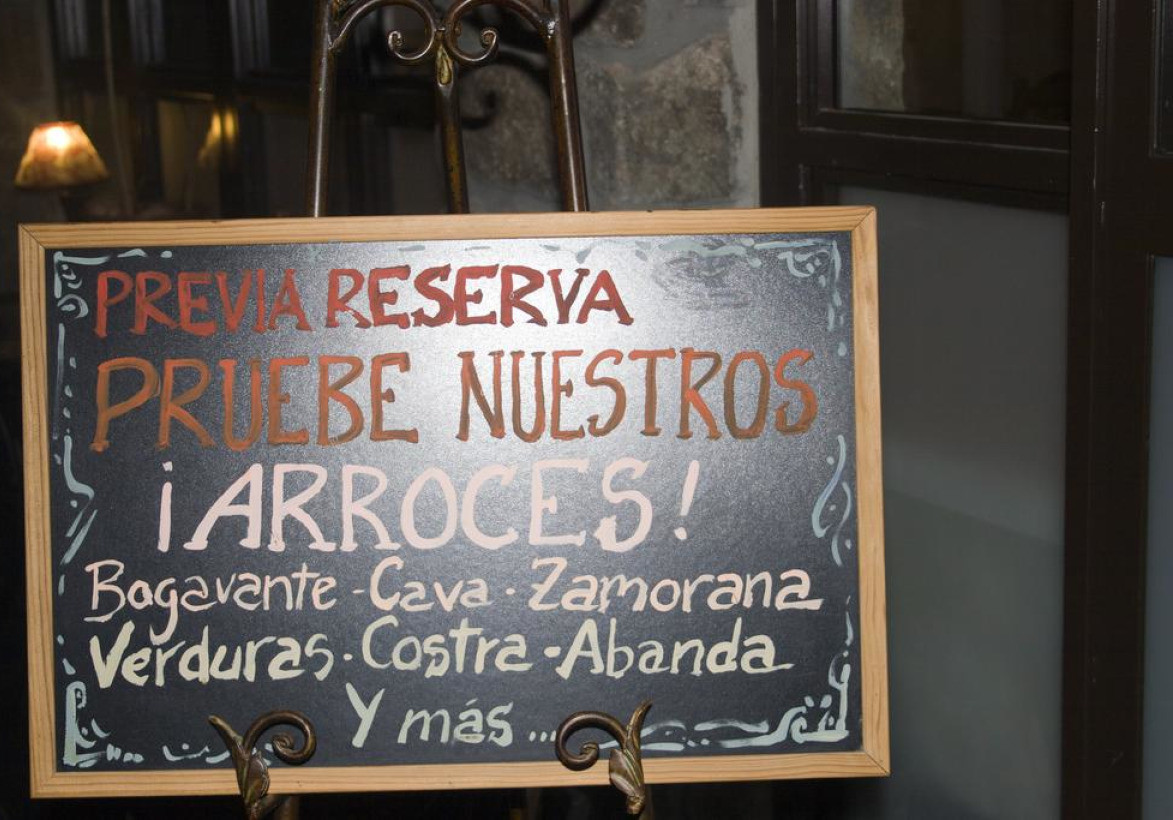 PREVIA RESERVA
PRUEBE NUESTROS
¡ARROCES!
Bogavante - Cava · Zamorana
Verduras · Costra - Abanda
Y más ...